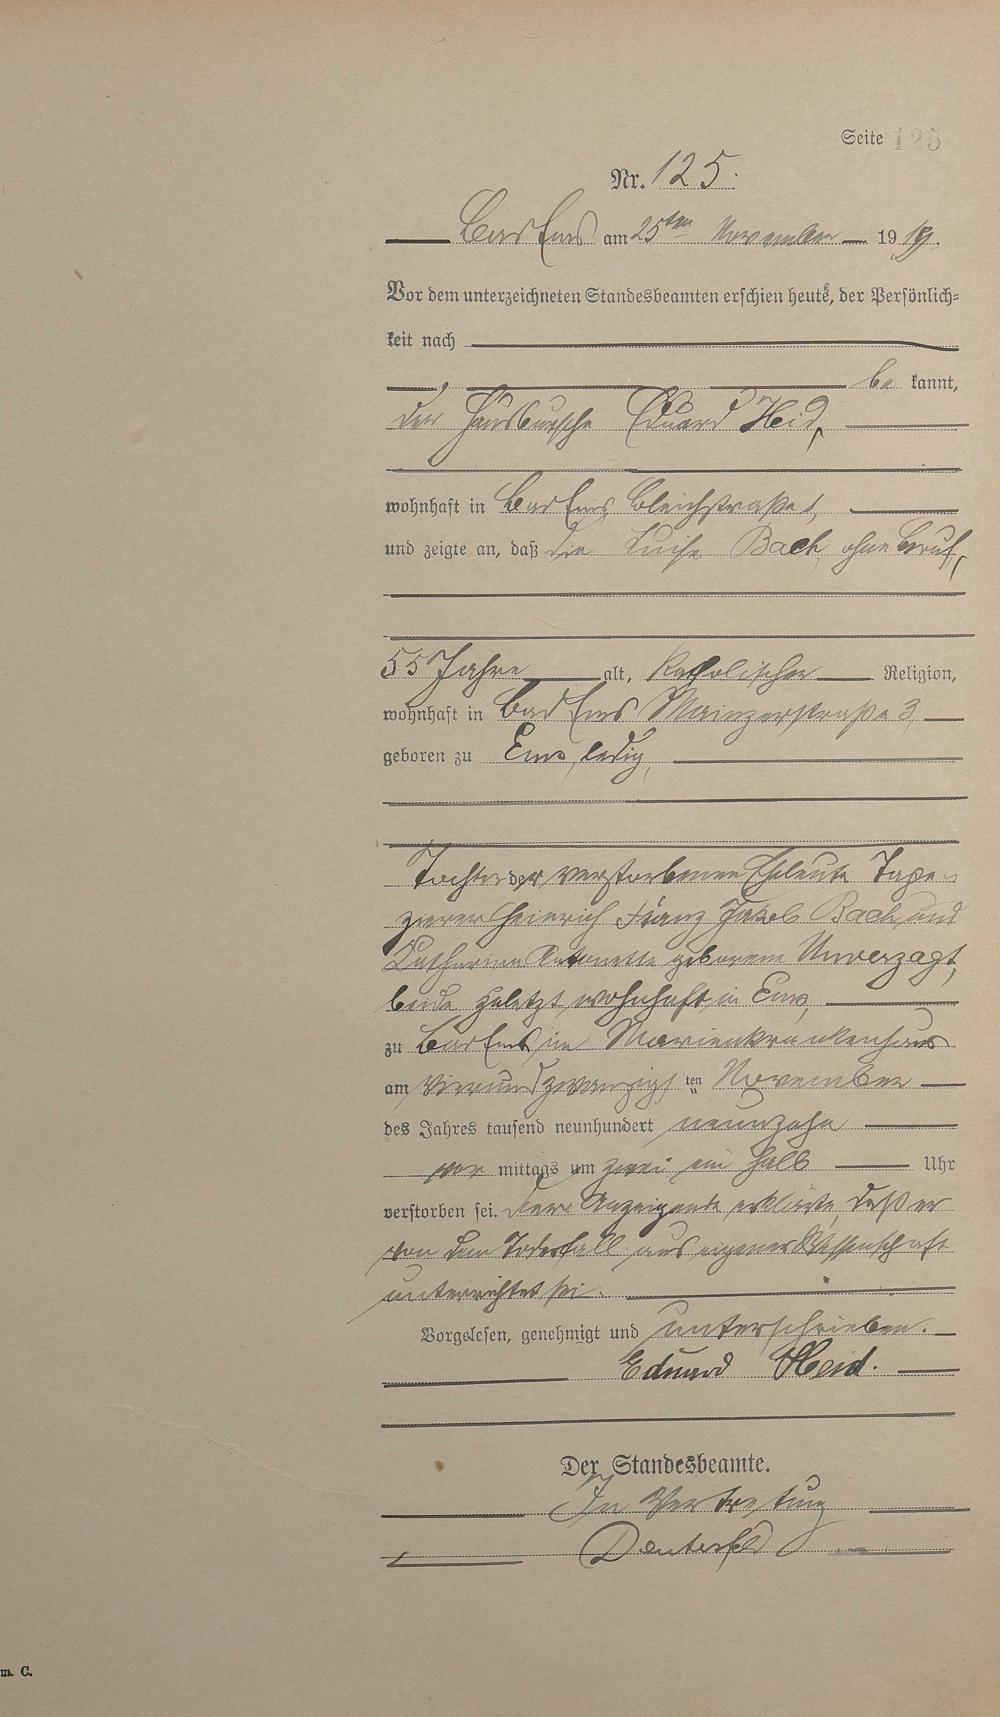 Seite 125
Nr. 125.
Bad Ems am 25ten November 1919.
Vor dem unterzeichneten Standesbeamten erschien heute, der Persönlich=
keit nach
be kannt,
der Hausbursche Eduard Heid,
wohnhaft in Bad Ems, Bleichstraße 1,
und zeigte an, daß die Luise Bach, ohne Beruf,
55 Jahre alt, katholischer Religion,
wohnhaft in Bad Ems Mainzerstraße 3
geboren zu Ems, ledig,
Tochter der verstorbenen Eheleute Tape-
zierer Heinrich Franz Jakob Bach und
Katharina Antonette geborene Unverzagt,
beide zuletzt wohnhaft in Ems,
zu Bad Ems im Marienkrankenhaus
am vierundzwanzigsten November
des Jahres tausend neunhundert neunzehn
vor mittags um zwei ein halb Uhr
verstorben sei. Der Anzeigende erklärte, daß er
von dem Todesfall aus eigener Wissenschaft
unterrichtet sei.
Vorgelesen, genehmigt und unterschrieben.
Eduard Heid.
Der Standesbeamte.
In Vertretung
m. C.